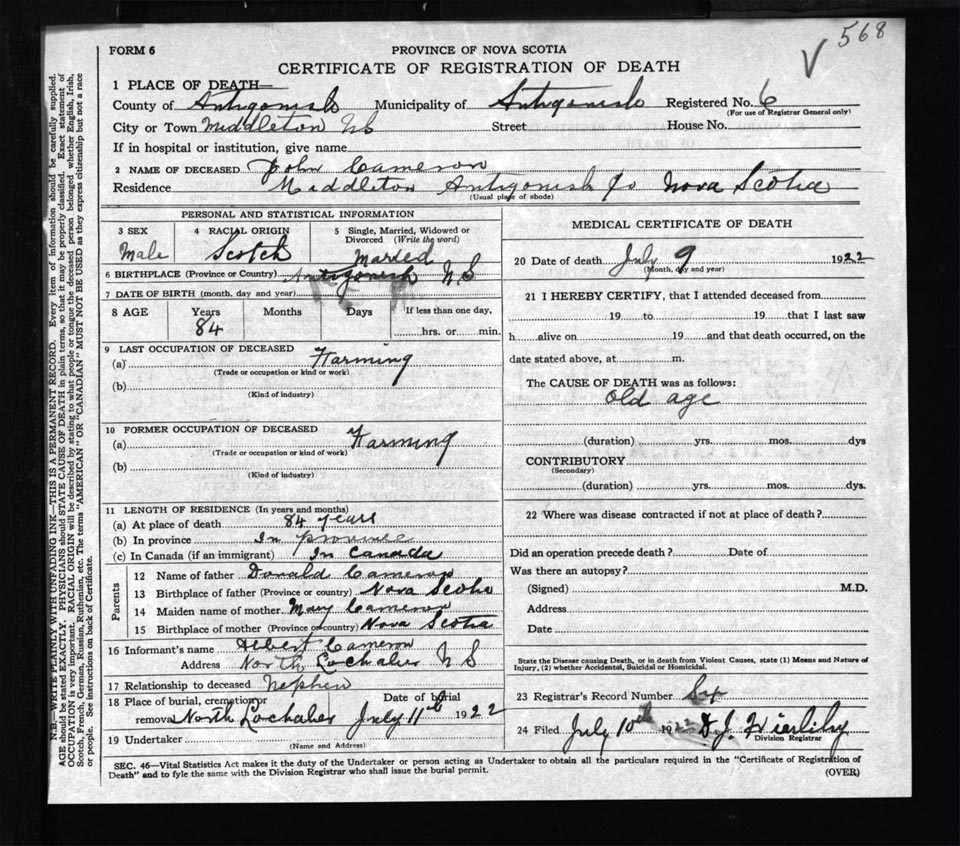 568
V
FORM 6
PROVINCE OF NOVA SCOTIA
CERTIFICATE OF REGISTRATION OF DEATH
1 PLACE OF DEATH—
County of Antigonish Municipality of Antigonish Registered No. 6
(For use of Registrar General only)
City or Town Middleton NS Street House No.
If in hospital or institution, give name
2 NAME OF DECEASED John Cameron
Residence Middleton Antigonish Co Nova Scotia
(Usual place of abode)
PERSONAL AND STATISTICAL INFORMATION
3 SEX
Male
4 RACIAL ORIGIN
Scotch
5 Single, Married, Widowed or
Divorced (Write the word)
Married
6 BIRTHPLACE (Province or Country) Antigonish N S
7 DATE OF BIRTH (month, day and year)
8 AGE Years Months Days If less than one day,
84 hrs. or min.
9 LAST OCCUPATION OF DECEASED
(a) Farming
(Trade or occupation or kind or work)
(b)
(Kind of industry)
10 FORMER OCCUPATION OF DECEASED
(a) Farming
(Trade or occupation or kind of work)
(b)
(Kind of industry)
11 LENGTH OF RESIDENCE (In years and months)
(a) At place of death 84 years
(b) In province In province
(c) In Canada (if an immigrant) In Canada
Parents
12 Name of father Donald Cameron
13 Birthplace of father (Province or country) Nova Scotia
14 Maiden name of mother Mary Cameron
15 Birthplace of mother (Province or country) Nova Scotia
16 Informant's name Cameron
Address North Lochaber N S
17 Relationship to deceased Nephew
18 Place of burial, cremation or Date of burial
removal North Lochaber July 11th 1922
19 Undertaker
(Name and Address)
MEDICAL CERTIFICATE OF DEATH
20 Date of death July 9 1922
(Month, day and year)
21 I HEREBY CERTIFY, that I attended deceased from
19 to 19 that I last saw
h alive on 19 and that death occurred, on the
date stated above, at m.
The CAUSE OF DEATH was as follows:
Old age
(duration) yrs. mos. dys
CONTRIBUTORY
(Secondary)
(duration) yrs. mos. dys.
22 Where was disease contracted if not at place of death?
Did an operation precede death? Date of
Was there an autopsy?
(Signed) M.D.
Address
Date
State the Disease causing Death, or in death from Violent Causes, state (1) Means and Nature of
Injury, (2) whether Accidental, Suicidal or Homicidal.
23 Registrar's Record Number
24 Filed July 10th 1922 D. J.
Division Registrar
SEC. 46—Vital Statistics Act makes it the duty of the Undertaker or person acting as Undertaker to obtain all the particulars required in the "Certificate of Registration of
Death" and to fyle the same with the Division Registrar who shall issue the burial permit.
(OVER)
N.B.—WRITE PLAINLY WITH UNFADING INK—THIS IS A PERMANENT RECORD. Every item of information should be carefully supplied.
AGE should be stated EXACTLY. PHYSICIANS should STATE CAUSE OF DEATH in plain terms, so that it may be properly classified. Exact statement of
OCCUPATION is very important. RACIAL ORIGIN will be described by stating to what people or tongue the deceased person belonged whether English, Irish,
Scotch, French, German, Russian, Ruthenian, etc. The terms "AMERICAN" OR "CANADIAN" MUST NOT BE USED as they express citizenship but not a race
or people. See instructions on back of Certificate.